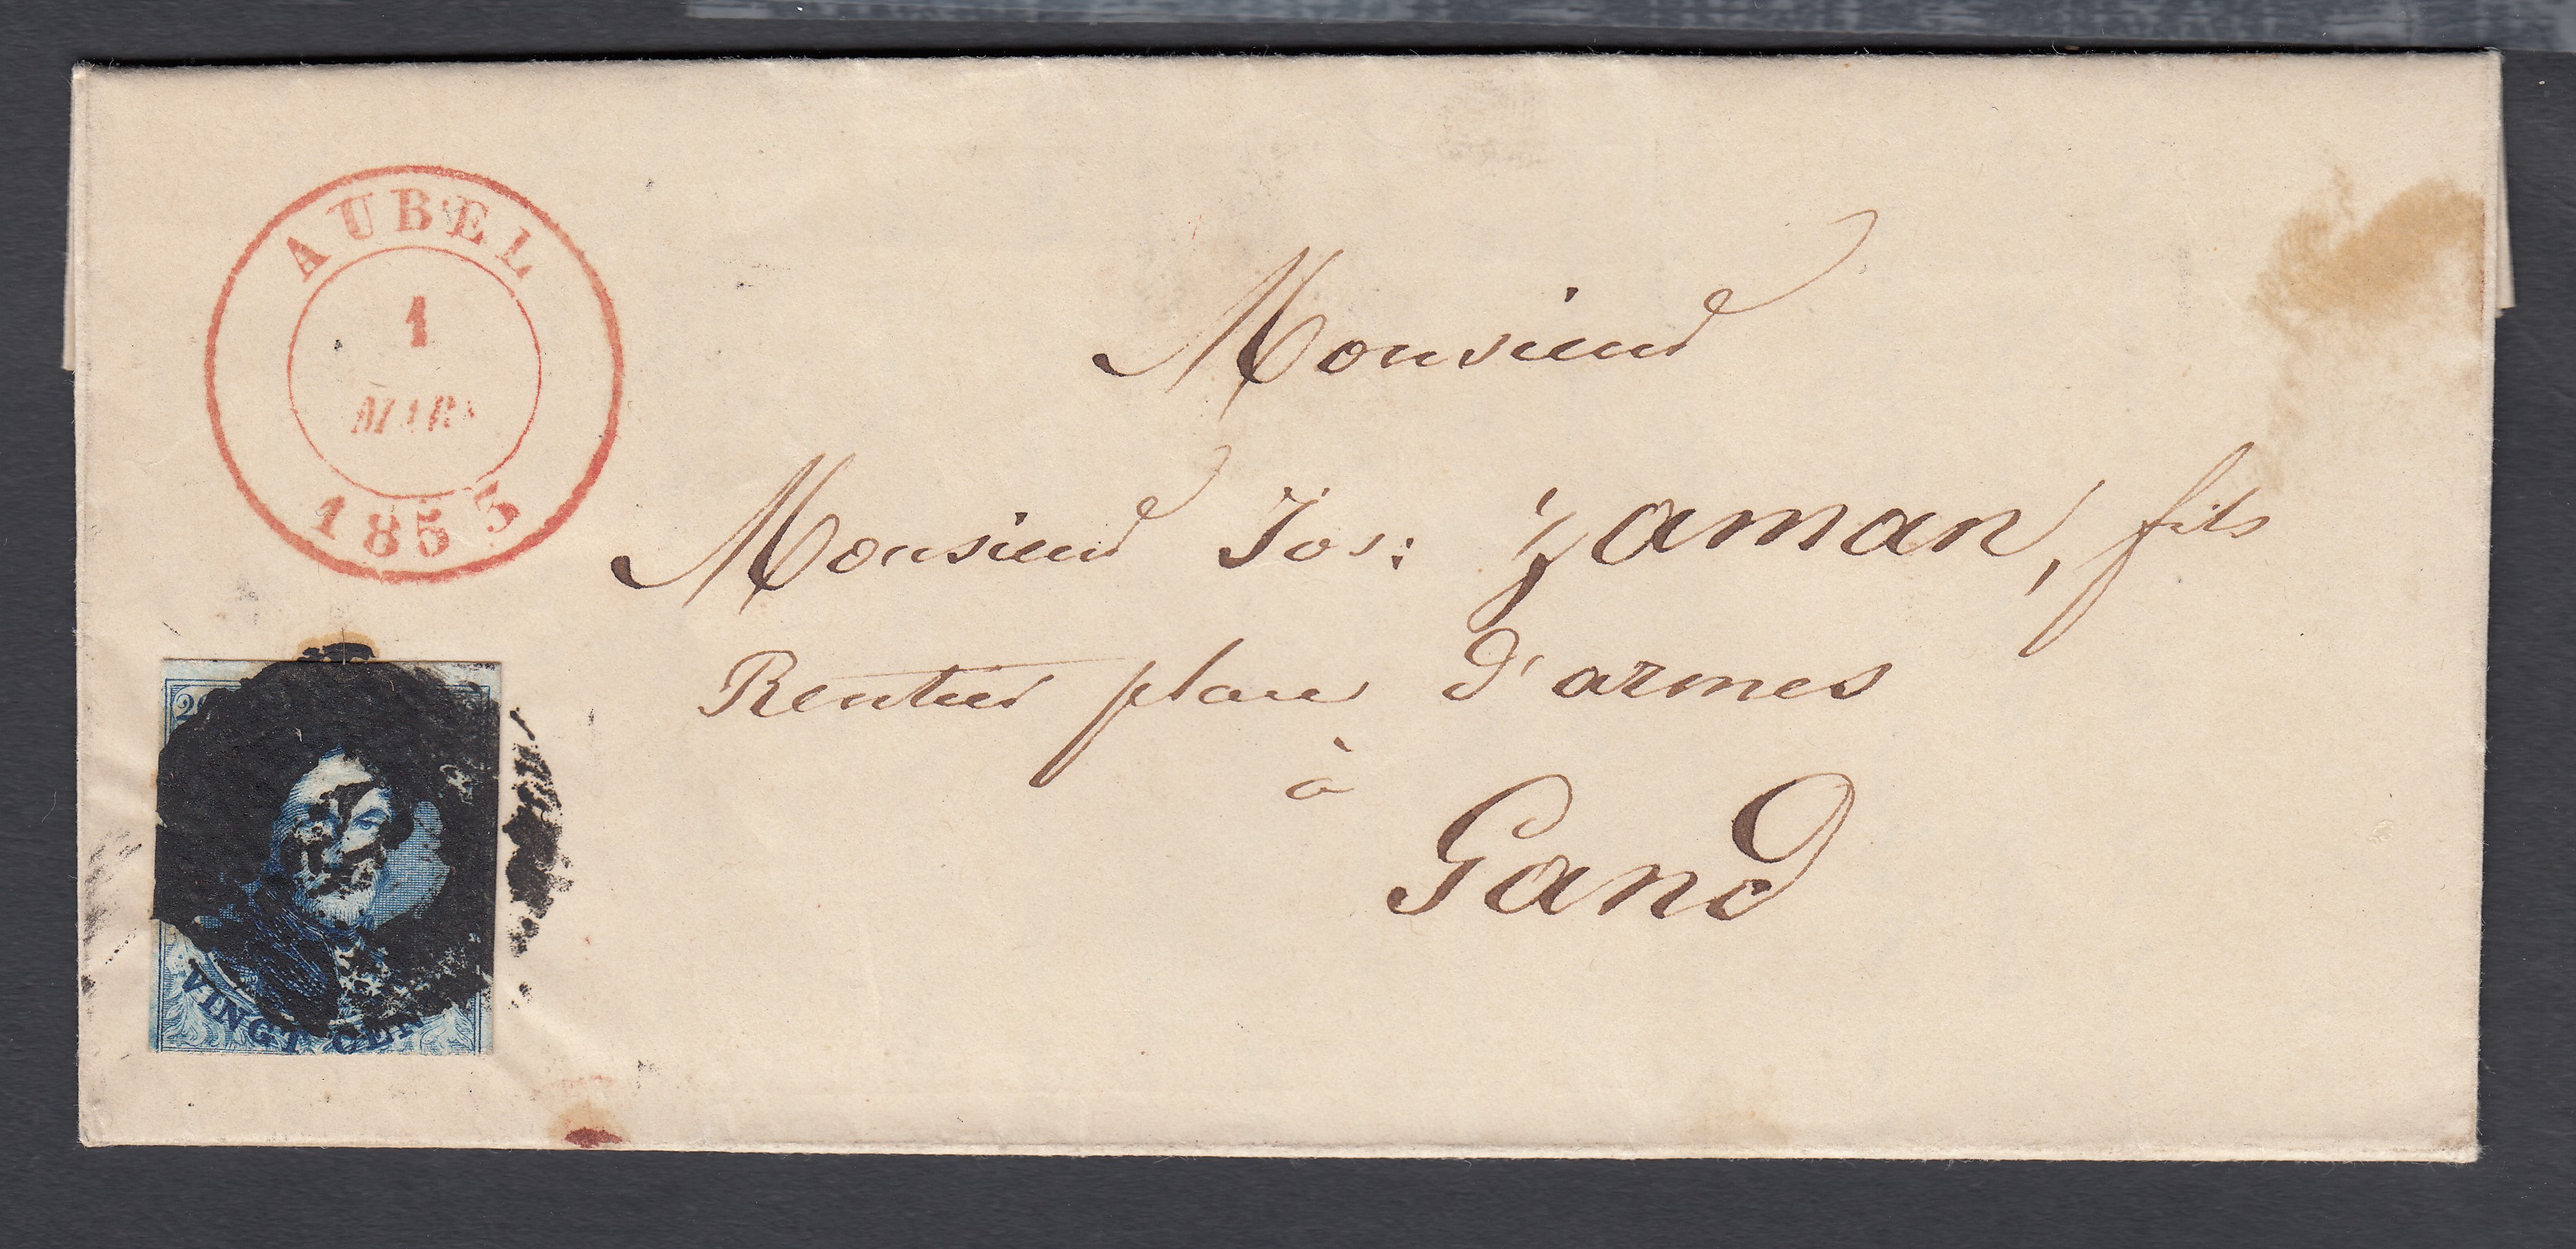 AUBEL
1
MARS
1853
Monsieur
Monsieur Jos: Zaman, fils
Rentier place d'armes
à
Gand
20
VINGT CEN